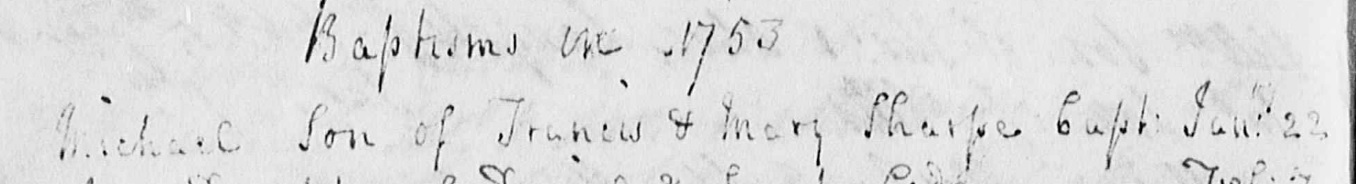 Baptisms in 1753
Michael Son of Francis & Mary Sharpe bapt: Janry 22